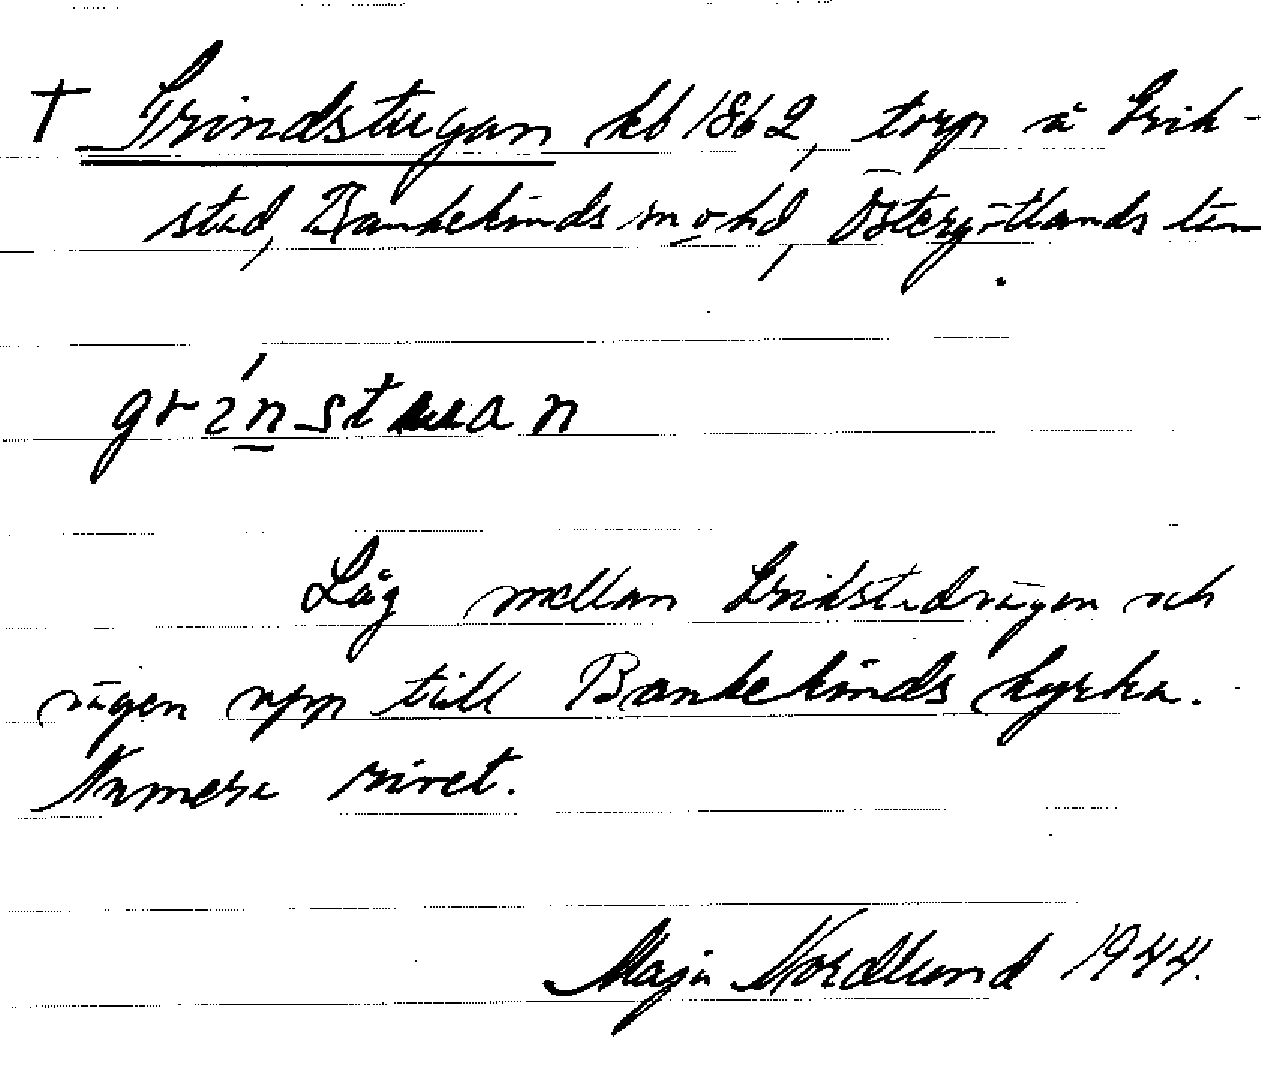 † Grindstugan kb 1862, torp å Erik-
stad, Bankekinds sn o hd, Östergötlands län
.
grínstuan
Låg mellan Erikstadvägen och
vägen upp till Bankekinds kyrka.
Numera rivet.
Maja Nordlund 1944.